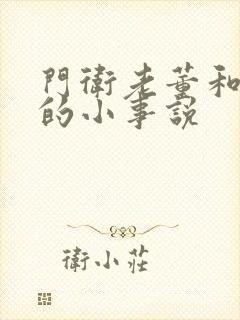 門衛老董和
的小事説
衛小莊